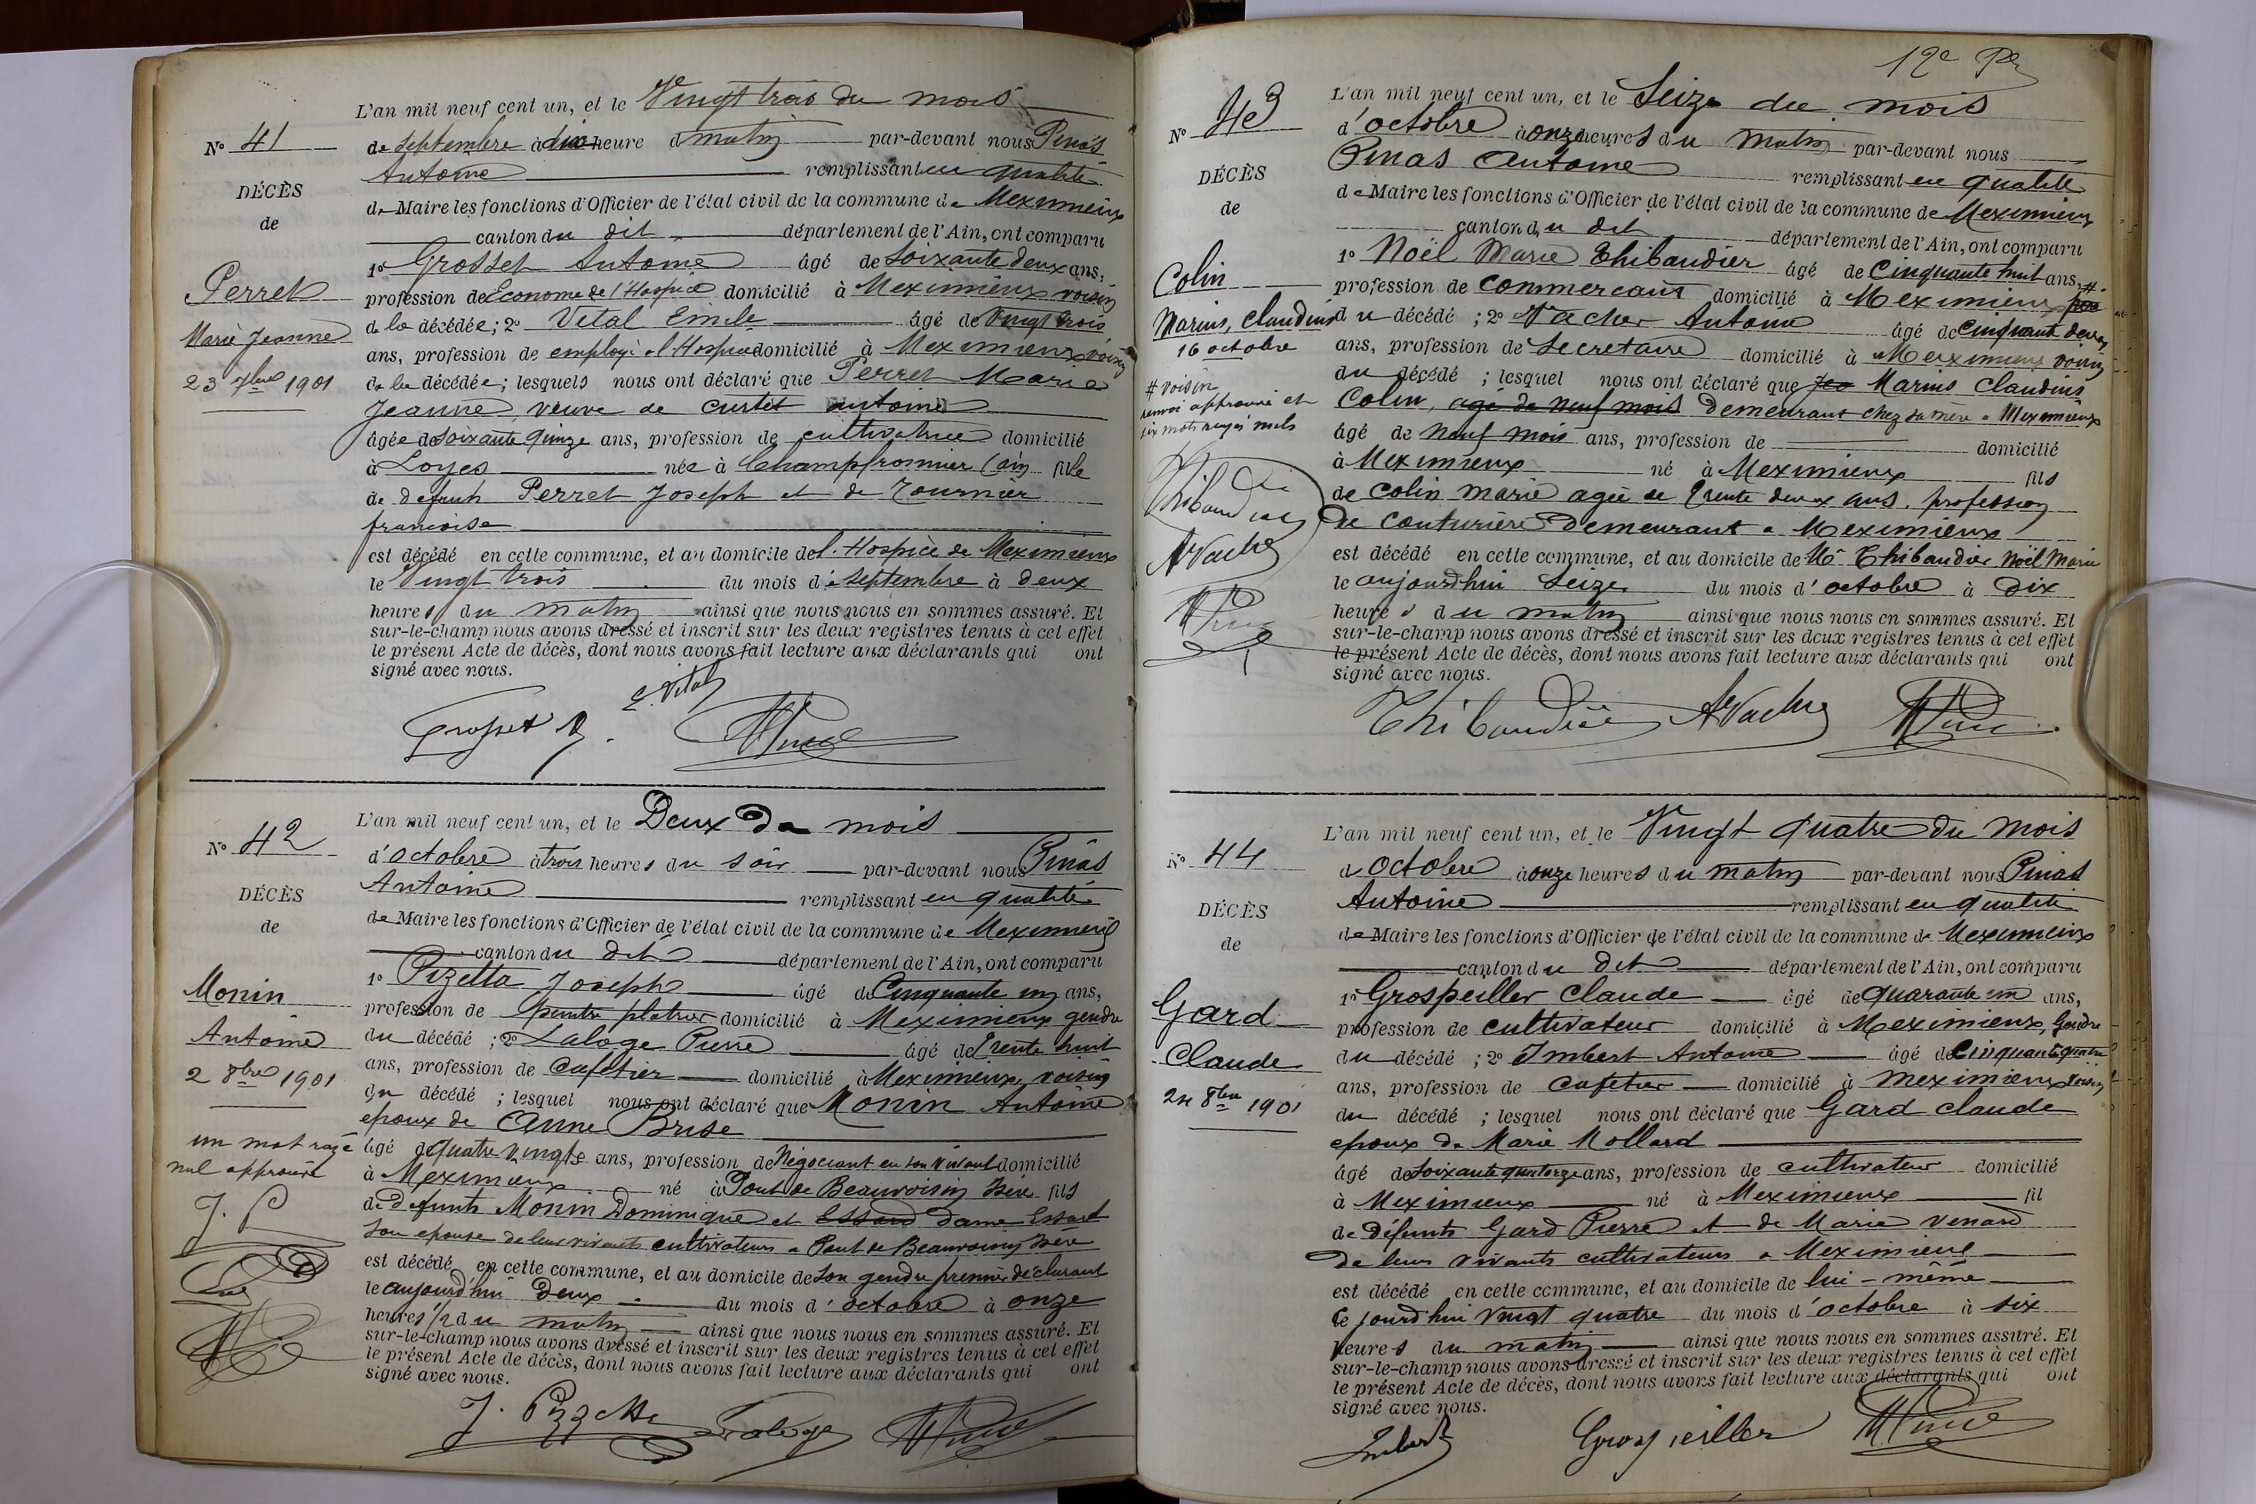 N° 41
DÉCÈS
de
Perret
Marie Jeanne
23 7bre 1901
L'an mil neuf cent un, et le Vingt trois du mois
de septembre à dix heure d matin par-devant nous Pinas
Antoine remplissant en qualité
de Maire les fonctions d'Officier de l'état civil de la commune de Meximieux
canton du dit département de l'Ain, ont comparu
1° Grosset Antoine âgé de Soixante deux ans,
profession de Econome de l'Hospice domicilié à Meximieux voisin
de la décédée; 2° Vital Emile âgé de Vingt trois
ans, profession de employé à l'Hospice domicilié à Meximieux voisin
de la décédée; lesquels nous ont déclaré que Perret Marie
Jeanne veuve de Curtet Antoine
âgée de Soixante quinze ans, profession de cultivatrice domicilié
à Loyes née à Champfromier (Ain fille
de defunts Perret Joseph et de Tournier
françoise
est décédé en cette commune, et au domicile de l'Hospice de Meximieux
le Vingt trois du mois de Septembre à deux
heures du matin ainsi que nous nous en sommes assuré. Et
sur-le-champ nous avons dressé et inscrit sur les deux registres tenus à cet effet
le présent Acte de décès, dont nous avons fait lecture aux déclarants qui ont
signé avec nous.
E. Vital
Grosset A
N° 42
DÉCÈS
de
Monin
Antoine
2 8bre 1901
un mot rayé
nul approuvé
J. P
L'an mil neuf cent un, et le Deux du mois
d'octobre à trois heures du soir par-devant nous Pinas
Antoine remplissant en qualité
de Maire les fonctions d'Officier de l'état civil de la commune de Meximieux
canton du dit département de l'Ain, ont comparu
1° Pizetta Joseph âgé de Cinquante un ans,
profession de peintre platrier domicilié à Meximieux gendre
du décédé; 2° Laloge Pierre âgé de Trente huit
ans, profession de cafetier domicilié à Meximieux, voisin
du décédé; lesquel nous ont déclaré que Monin Antoine
epoux de Anne Brise
âgé de quatre vingts ans, profession de Négociant en son vivant domicilié
à Meximieux né à Pont de Beauvoisin Isère fils
de Defunts Monin Dominique et Essard dame Essard
son epouse de leurs vivants cultivateurs a Pont de Beauvoisin Isère
est décédé en cette commune, et au domicile de son gendre premier déclarant
le aujourd'hui Deux du mois d'octobre à onze
heures 1/2 du matin ainsi que nous nous en sommes assuré. Et
sur-le-champ nous avons dressé et inscrit sur les deux registres tenus à cet effet
le présent Acte de décès, dont nous avons fait lecture aux déclarants qui ont
signé avec nous.
J. Pizetta Laloge
12e
N° 43
DÉCÈS
de
Colin
Marius, Claudius
16 octobre
# voisin
renvoi approuvé et
six mots rayés nuls
Thibaudier
A Vacher
L'an mil neuf cent un, et le Seize du mois
d'octobre à onze heures du matin par-devant nous
Pinas Antoine remplissant en qualité
de Maire les fonctions d'Officier de l'état civil de la commune de Meximieux
canton du dit département de l'Ain, ont comparu
1° Noël Marie Thibaudier âgé de Cinquante huit ans, #
profession de Commercant domicilié à Meximieux
du décédé; 2° Vacher Antoine âgé de Cinquante deux
ans, profession de Secretaire domicilié à Meximieux voisin
du décédé; lesquel nous ont déclaré que Marius Claudius
Colin, agé de neuf mois Demeurant chez sa mère a Meximieux
âgé de Neuf mois ans, profession de domicilié
à Meximieux né à Meximieux fils
de Colin Marie agée de Trente deux ans, profession
de couturière demeurant a Meximieux
est décédé en cette commune, et au domicile de Mr Thibaudier Noël Marie
le aujourd'hui Seize du mois d'octobre à Dix
heures du matin ainsi que nous nous en sommes assuré. Et
sur-le-champ nous avons dressé et inscrit sur les deux registres tenus à cet effet
le présent Acte de décès, dont nous avons fait lecture aux déclarants qui ont
signé avec nous.
Thibaudier A Vacher
N° 44
DÉCÈS
de
Gard
Claude
24 8bre 1901
L'an mil neuf cent un, et le Vingt quatre du mois
d octobre à onze heures du matin par-devant nous Pinas
Antoine remplissant en qualité
de Maire les fonctions d'Officier de l'état civil de la commune de Meximieux
canton du dit département de l'Ain, ont comparu
1° Grospeiller Claude âgé de quarante un ans,
profession de cultivateur domicilié à Meximieux, Gendre
du décédé; 2° Imbert Antoine âgé de Cinquante quatre
ans, profession de cafetier domicilié à Meximieux voisin
du décédé; lesquel nous ont déclaré que Gard Claude
epoux de Marie Mollard
âgé de Soixante quatorze ans, profession de cultivateur domicilié
à Meximieux né à Meximieux fil
de Défunts Gard Pierre et de Marie Venard
de leurs vivants cultivateurs a Meximieux
est décédé en cette commune, et au domicile de lui-même
le jourd'hui vingt quatre du mois d'octobre à six
heures du matin ainsi que nous nous en sommes assuré. Et
sur-le-champ nous avons dressé et inscrit sur les deux registres tenus à cet effet
le présent Acte de décès, dont nous avons fait lecture aux déclarants qui ont
signé avec nous.
Imbert Grospeiller